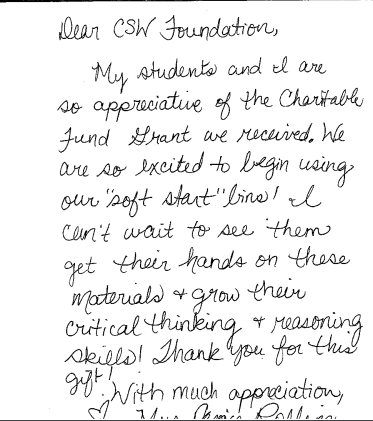 Dear CSW Foundation,
My students and I are
so appreciative of the Charitable
Fund Grant we received. We
are so excited to begin using
our "soft start" bins! I
can't wait to see them
get their hands on these
materials + grow their
critical thinking + reasoning
skills! Thank you for this
gift!
With much appreciation,